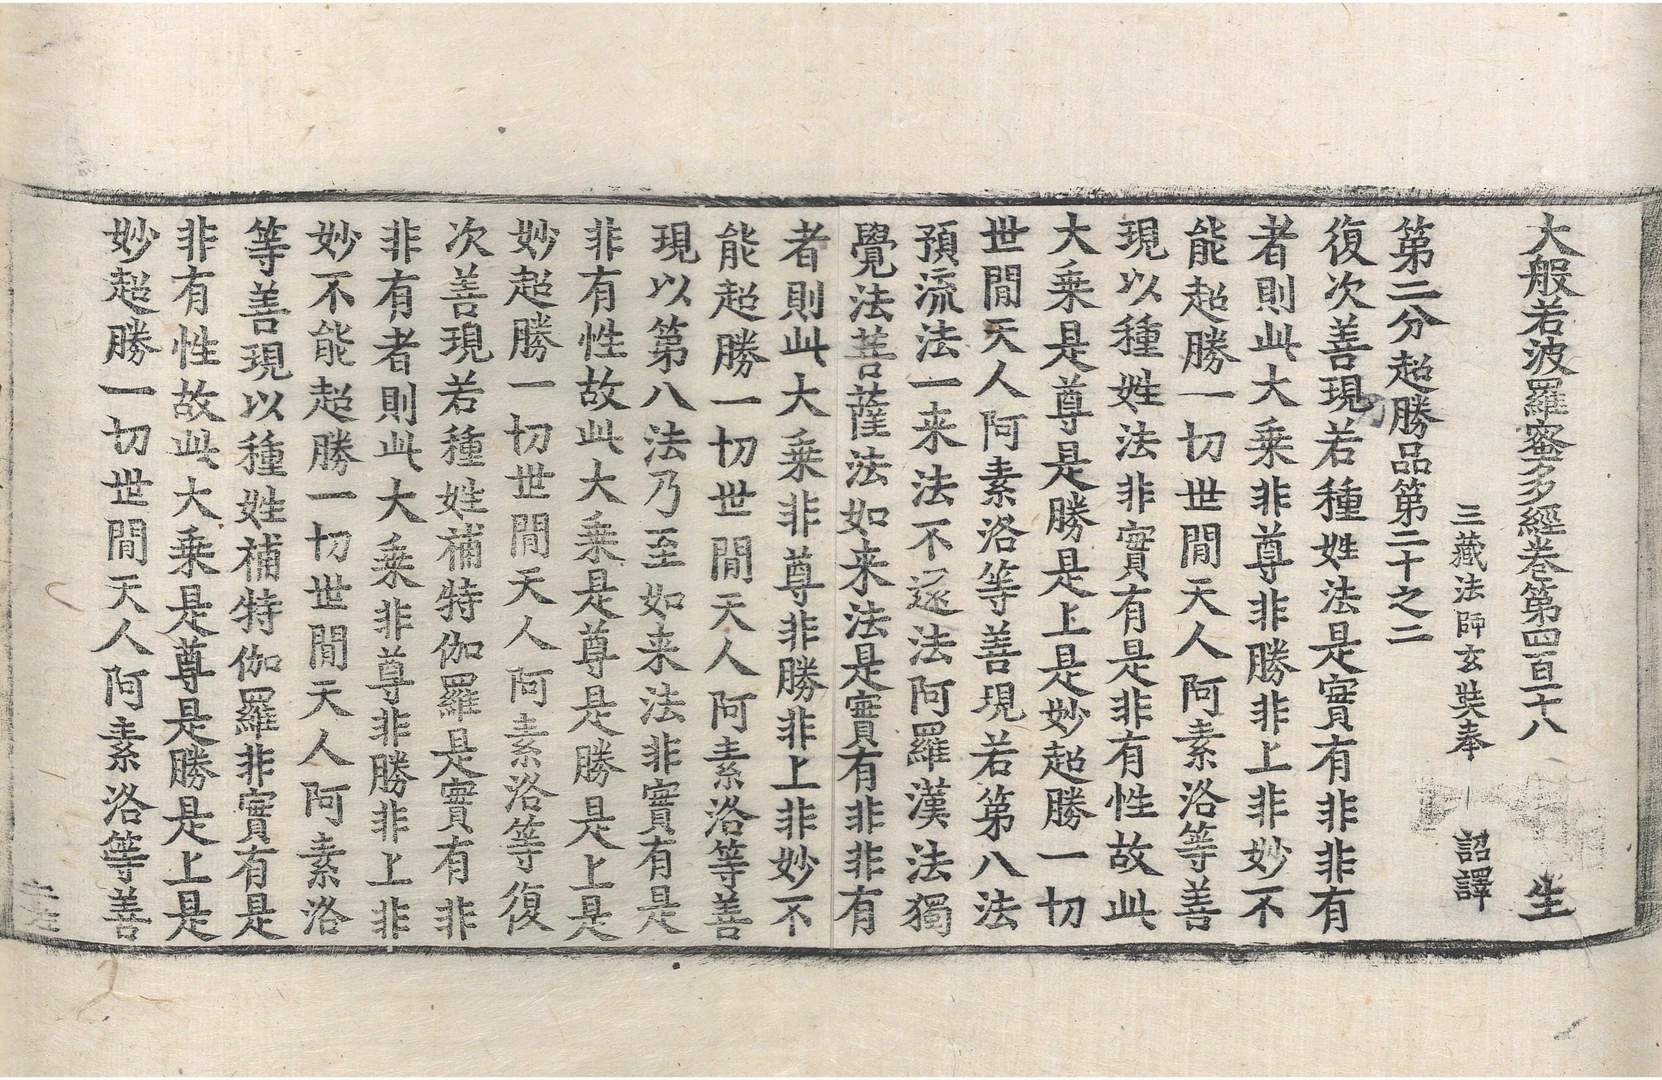 大般若波羅蜜多經卷第四百十八 生
三藏法師玄奘奉 詔譯
第二分超勝品第二十之二
復次善現若種姓法是實有非非有
者則此大乘非尊非勝非上非妙不
能超勝一切世間天人阿素洛等善
現以種姓法非實有是非有性故此
大乘是尊是勝是上是妙超勝一切
世間天人阿素洛等善現若第八法
預流法一来法不還法阿羅漢法獨
覺法菩薩法如来法是實有非非有
者則此大乘非尊非勝非上非妙不
能超勝一切世間天人阿素洛等善
現以第八法乃至如来法非實有是
非有性故此大乘是尊是勝是上是
妙超勝一切世間天人阿素洛等復
次善現若種姓補特伽羅是實有非
非有者則此大乘非尊非勝非上非
妙不能超勝一切世間天人阿素洛
等善現以種姓補特伽羅非實有是
非有性故此大乘是尊是勝是上是
妙超勝一切世間天人阿素洛等善